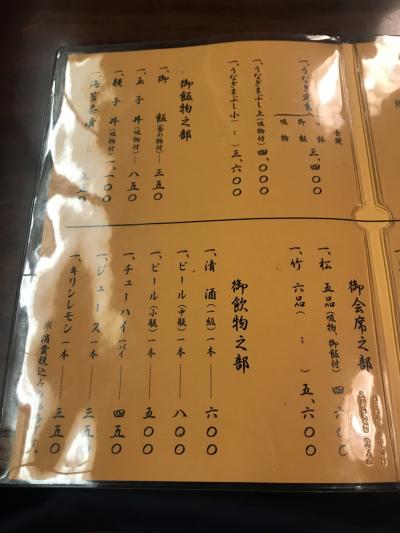 一、うなぎ定食
長焼
御飯
吸物
三、四〇〇
一、うなぎまぶし上(吸物付)四、〇〇〇
一、うなぎまぶし小(〃)三、六〇〇
御飯物之部
一、御飯(香の物付)三五〇
一、玉子丼(吸物付)八五〇
一、親子丼(吸物付)一、一〇〇
一、海苔茶漬
御会席之部
一、松 五品(吸物、御飯付)四、六〇〇
一、竹 六品(〃)五、六〇〇
御飲物之部
一、清酒(一級)一本 六〇〇
一、ビール(中瓶)一本 八〇〇
一、ビール(小瓶)一本 五〇〇
一、チューハイ 一パイ 四五〇
一、ジュース 一本 三五〇
一、キリンレモン 一本 三五〇
※消費税込み